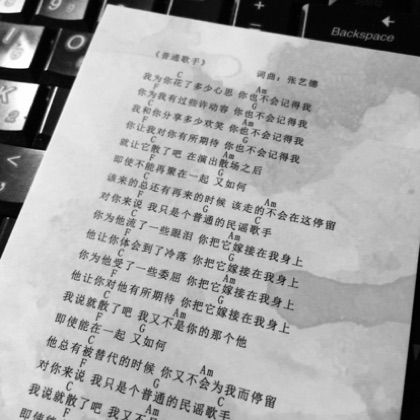 Backspace
《普通歌手》 词曲：张艺德
C Am
我为你花了多少心思 你也不会记得我
F G
你为我有过些许动容 你也不会记得我
C Am
我和你分享多少欢笑 你也不会记得我
F G
你让我对你有所期待 你也不会记得我
C Am
就让它散了吧 在演出散场之后
F G
即使不能再累在一起 又如何
C Am
该来的总还有再来的时候 该走的不会在这停留
F G C
对你来说 我只是个普通的民谣歌手
C Am
你为他流了一些眼泪 你把它嫁接在我身上
F G
他让你体会到了冷落 你把它嫁接在我身上
C Am
你为他受了一些委屈 你把它嫁接在我身上
F G
他让你对他有所期待 你把它嫁接在我身上
C Am
我说就散了吧 我又不是你的那个他
F G
即使能在一起 又如何
C Am
他总有被替代的时候 你又不会为我而停留
F G C
对你来说 我只是个普通的民谣歌手
C Am
我说就散了吧 我又不
F
即使